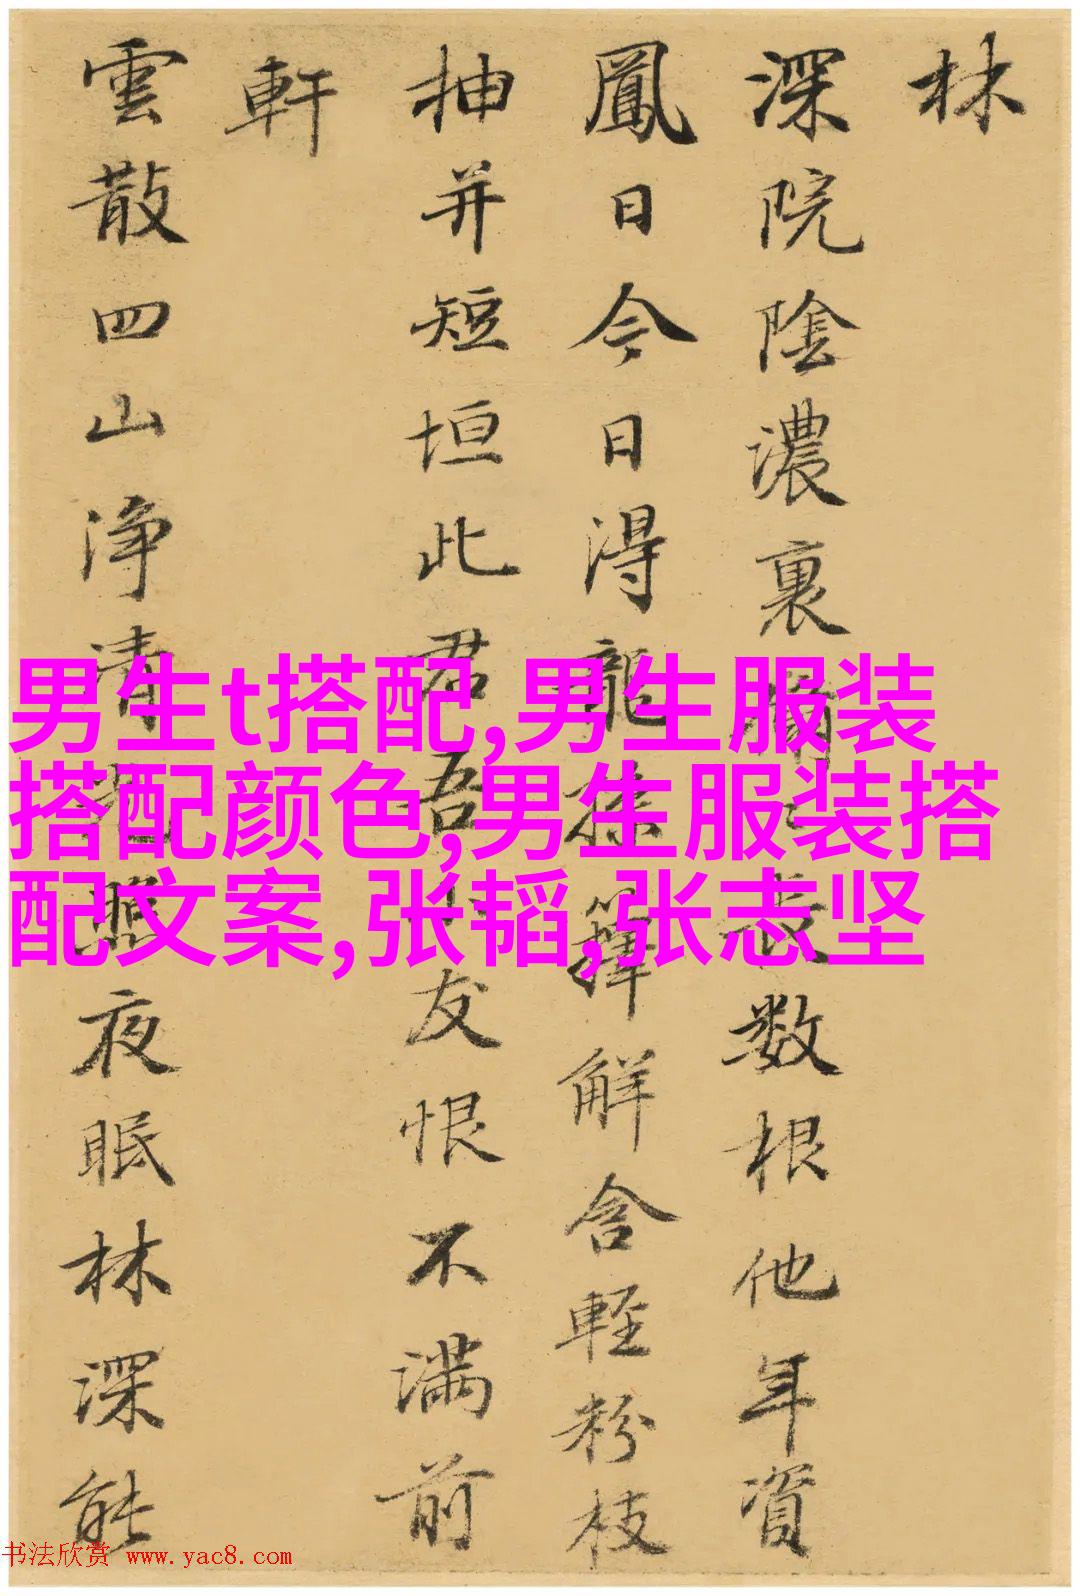 林
深院陰濃裏
数根他年資
鳳日今日得龍孫
籜解含輕粉枝
抽并短垣此君吾
友恨不满前
軒
雲散四山净清
夜眠林深能
男生t搭配,男生服装
搭配颜色,男生服装搭
配文案,张韬,张志坚
书法欣赏 www.yac8.com